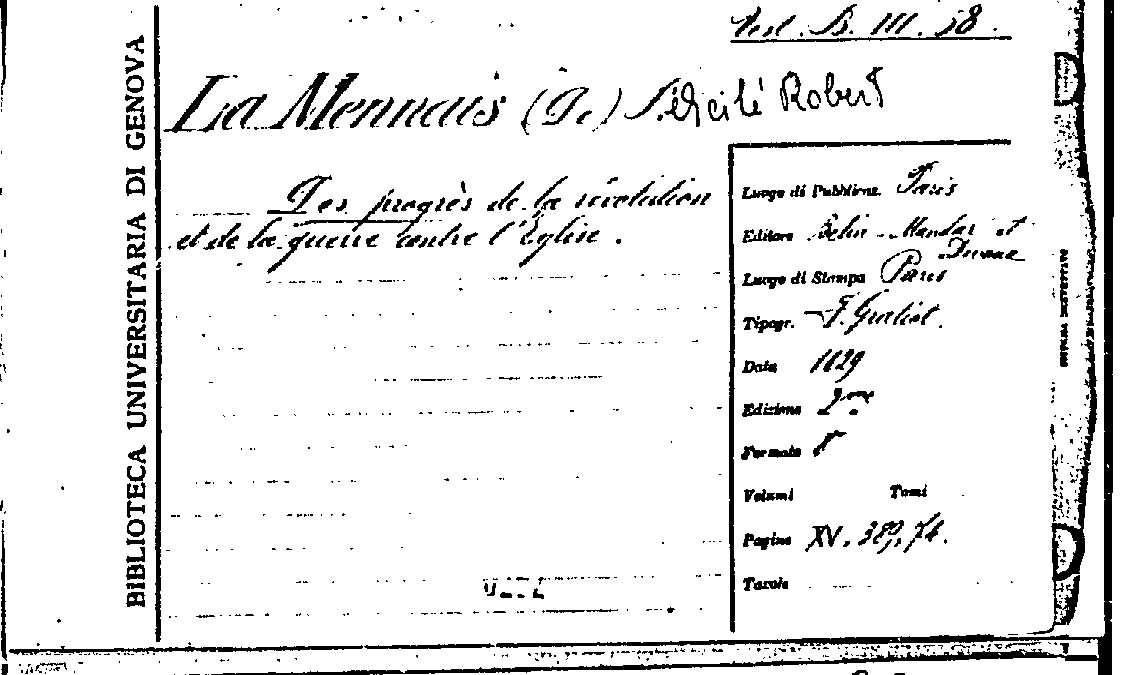 BIBLIOTECA UNIVERSITARIA DI GENOVA
B. III. 58.
La Mennais (De) Félicité Robert
Des progrès de la révolution
et de la guerre contre l'Eglise.
Luogo di Pubblicaz. Paris
Editore Belin-Mandar et
Devaux
Luogo di Stampa Paris
Tipogr. F. Gratiot.
Data 1829
Edizione 2me
Formato 8°
Volumi Tomi
Pagine XV, 389, 74.
Tavole